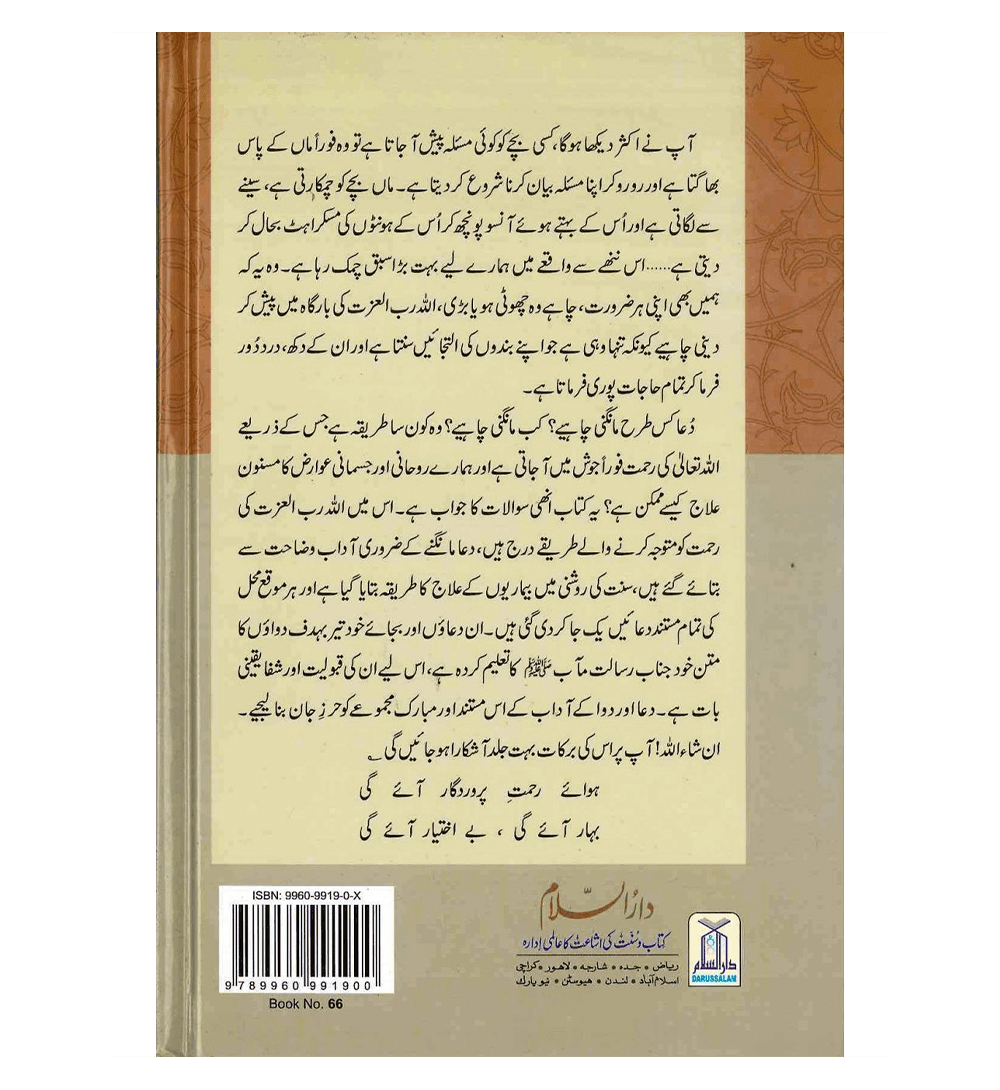 آپ نے اکثر دیکھا ہوگا، کسی بچے کو کوئی مسئلہ پیش آ جاتا ہے تو وہ فوراً ماں کے پاس
بھاگتا ہے اور رو رو کر اپنا مسئلہ بیان کرنا شروع کر دیتا ہے۔ ماں بچے کو چمکارتی ہے، سینے
سے لگاتی ہے اور اُس کے بہتے ہوئے آنسو پونچھ کر اُس کے ہونٹوں کی مسکراہٹ بحال کر
دیتی ہے...... اس ننھے سے واقعے میں ہمارے لیے بہت بڑا سبق چمک رہا ہے۔ وہ یہ کہ
ہمیں بھی اپنی ہر ضرورت، چاہے وہ چھوٹی ہو یا بڑی، اللہ رب العزت کی بارگاہ میں پیش کر
دینی چاہیے کیونکہ تنہا وہی ہے جو اپنے بندوں کی التجائیں سنتا ہے اور ان کے دکھ، درد دُور
فرما کر تمام حاجات پوری فرماتا ہے۔
دُعا کس طرح مانگنی چاہیے؟ کب مانگنی چاہیے؟ وہ کون سا طریقہ ہے جس کے ذریعے
اللہ تعالیٰ کی رحمت فوراً جوش میں آ جاتی ہے اور ہمارے روحانی اور جسمانی عوارض کا مسنون
علاج کیسے ممکن ہے؟ یہ کتاب انھی سوالات کا جواب ہے۔ اس میں اللہ رب العزت کی
رحمت کو متوجہ کرنے والے طریقے درج ہیں، دعا مانگنے کے ضروری آداب وضاحت سے
بتائے گئے ہیں، سنت کی روشنی میں بیماریوں کے علاج کا طریقہ بتایا گیا ہے اور ہر موقع محل
کی تمام مستند دعائیں یک جا کر دی گئی ہیں۔ ان دعاؤں اور بجائے خود تیر بہدف دواؤں کا
متن خود جناب رسالت مآب ﷺ کا تعلیم کردہ ہے، اس لیے ان کی قبولیت اور شفا یقینی
بات ہے۔ دعا اور دوا کے آداب کے اس مستند اور مبارک مجموعے کو حرزِ جان بنا لیجیے۔
ان شاء اللہ! آپ پر اس کی برکات بہت جلد آشکارا ہو جائیں گی ؎
ہوائے رحمتِ پروردگار آئے گی
بہار آئے گی ، بے اختیار آئے گی
دارُالسّلام
کتاب و سنّت کی اشاعت کا عالمی ادارہ
ریاض • جدہ • شارجہ • لاہور • کراچی
اسلام آباد • لندن • ہیوسٹن • نیو یارک
دارالسلام
DARUSSALAM
ISBN: 9960-9919-0-X
9 789960 991900
Book No. 66